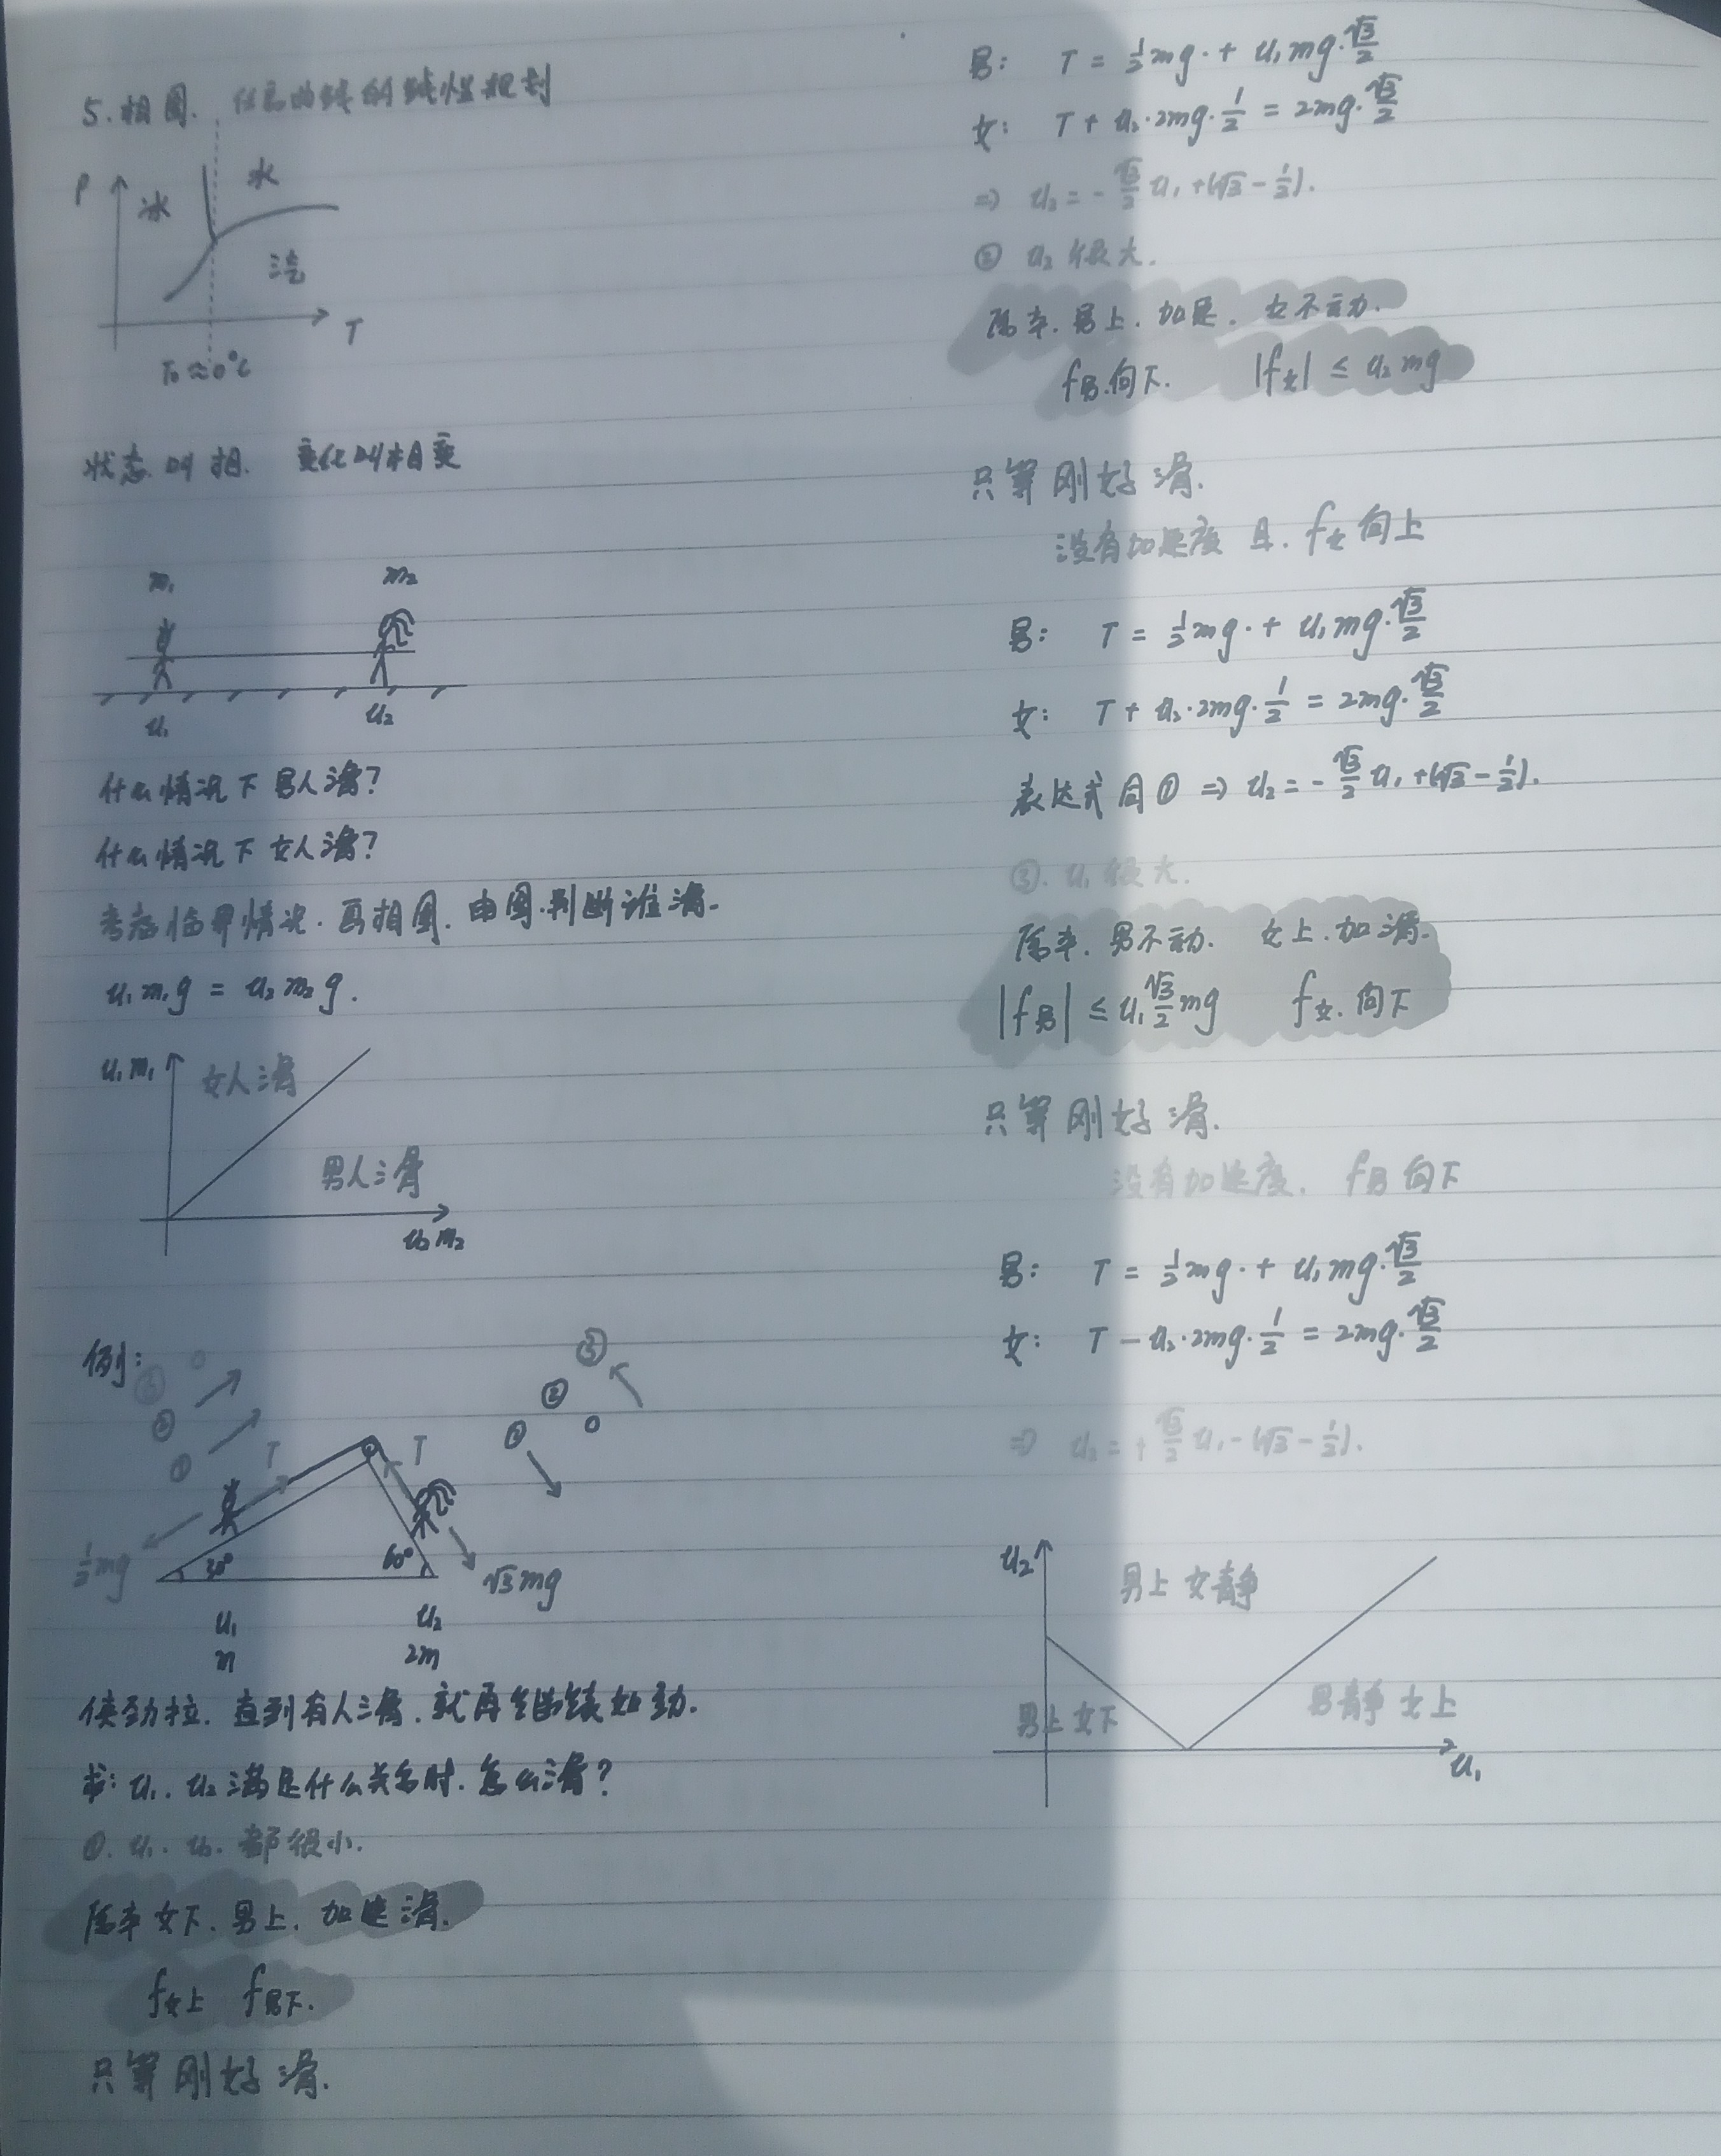 5.相图. 任意曲线的线性规划
P
冰
水
汽
T
T₀≈0℃
状态叫相. 变化叫相变
m₁ m₂
u₁ u₂
什么情况下男人滑?
什么情况下女人滑?
考虑临界情况.画相图.由图.判断谁滑.
u₁m₁g = u₂m₂g.
u₁m₁
女人滑
男人滑
u₂m₂
例:
③ 0
②
①
③
②
① 0
T T
½mg
30° 60°
√3mg
u₁ u₂
m 2m
使劲拉.直到有人滑.就再继续如劲.
求:u₁.u₂满足什么关系时.怎么滑?
①.u₁.u₂.都很小.
原本女下.男上.加速滑.
f女上 f男下.
只算刚好滑.
男: T = ½mg· + u₁mg·√3/2
女: T + u₂·2mg·1/2 = 2mg·√3/2
⇒ u₂ = -√3/2 u₁ + (√3 - ½).
② u₂很大.
原本.男上.加速. 女不动.
f男.向下. |f女| ≤ u₂mg
只算刚好滑.
没有加速度 且.f女向上
男: T = ½mg· + u₁mg·√3/2
女: T + u₂·2mg·1/2 = 2mg·√3/2
表达式同① ⇒ u₂ = -√3/2 u₁ + (√3 - ½).
③.u₁很大.
原本.男不动. 女上.加滑.
|f男| ≤ u₁√3/2mg f女.向下
只算刚好滑.
没有加速度. f男向下
男: T = ½mg· + u₁mg·√3/2
女: T - u₂·2mg·1/2 = 2mg·√3/2
⇒ u₂ = +√3/2 u₁ - (√3 - ½).
u₂
男上女静
男上女下
男静女上
u₁